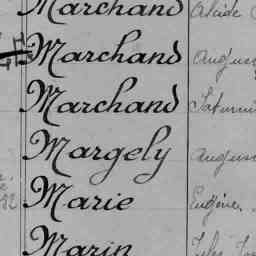 Marchand Alcide
Marchand Augus
Marchand Saturni
Margely Augus
Marie Eugène
Marin Jules